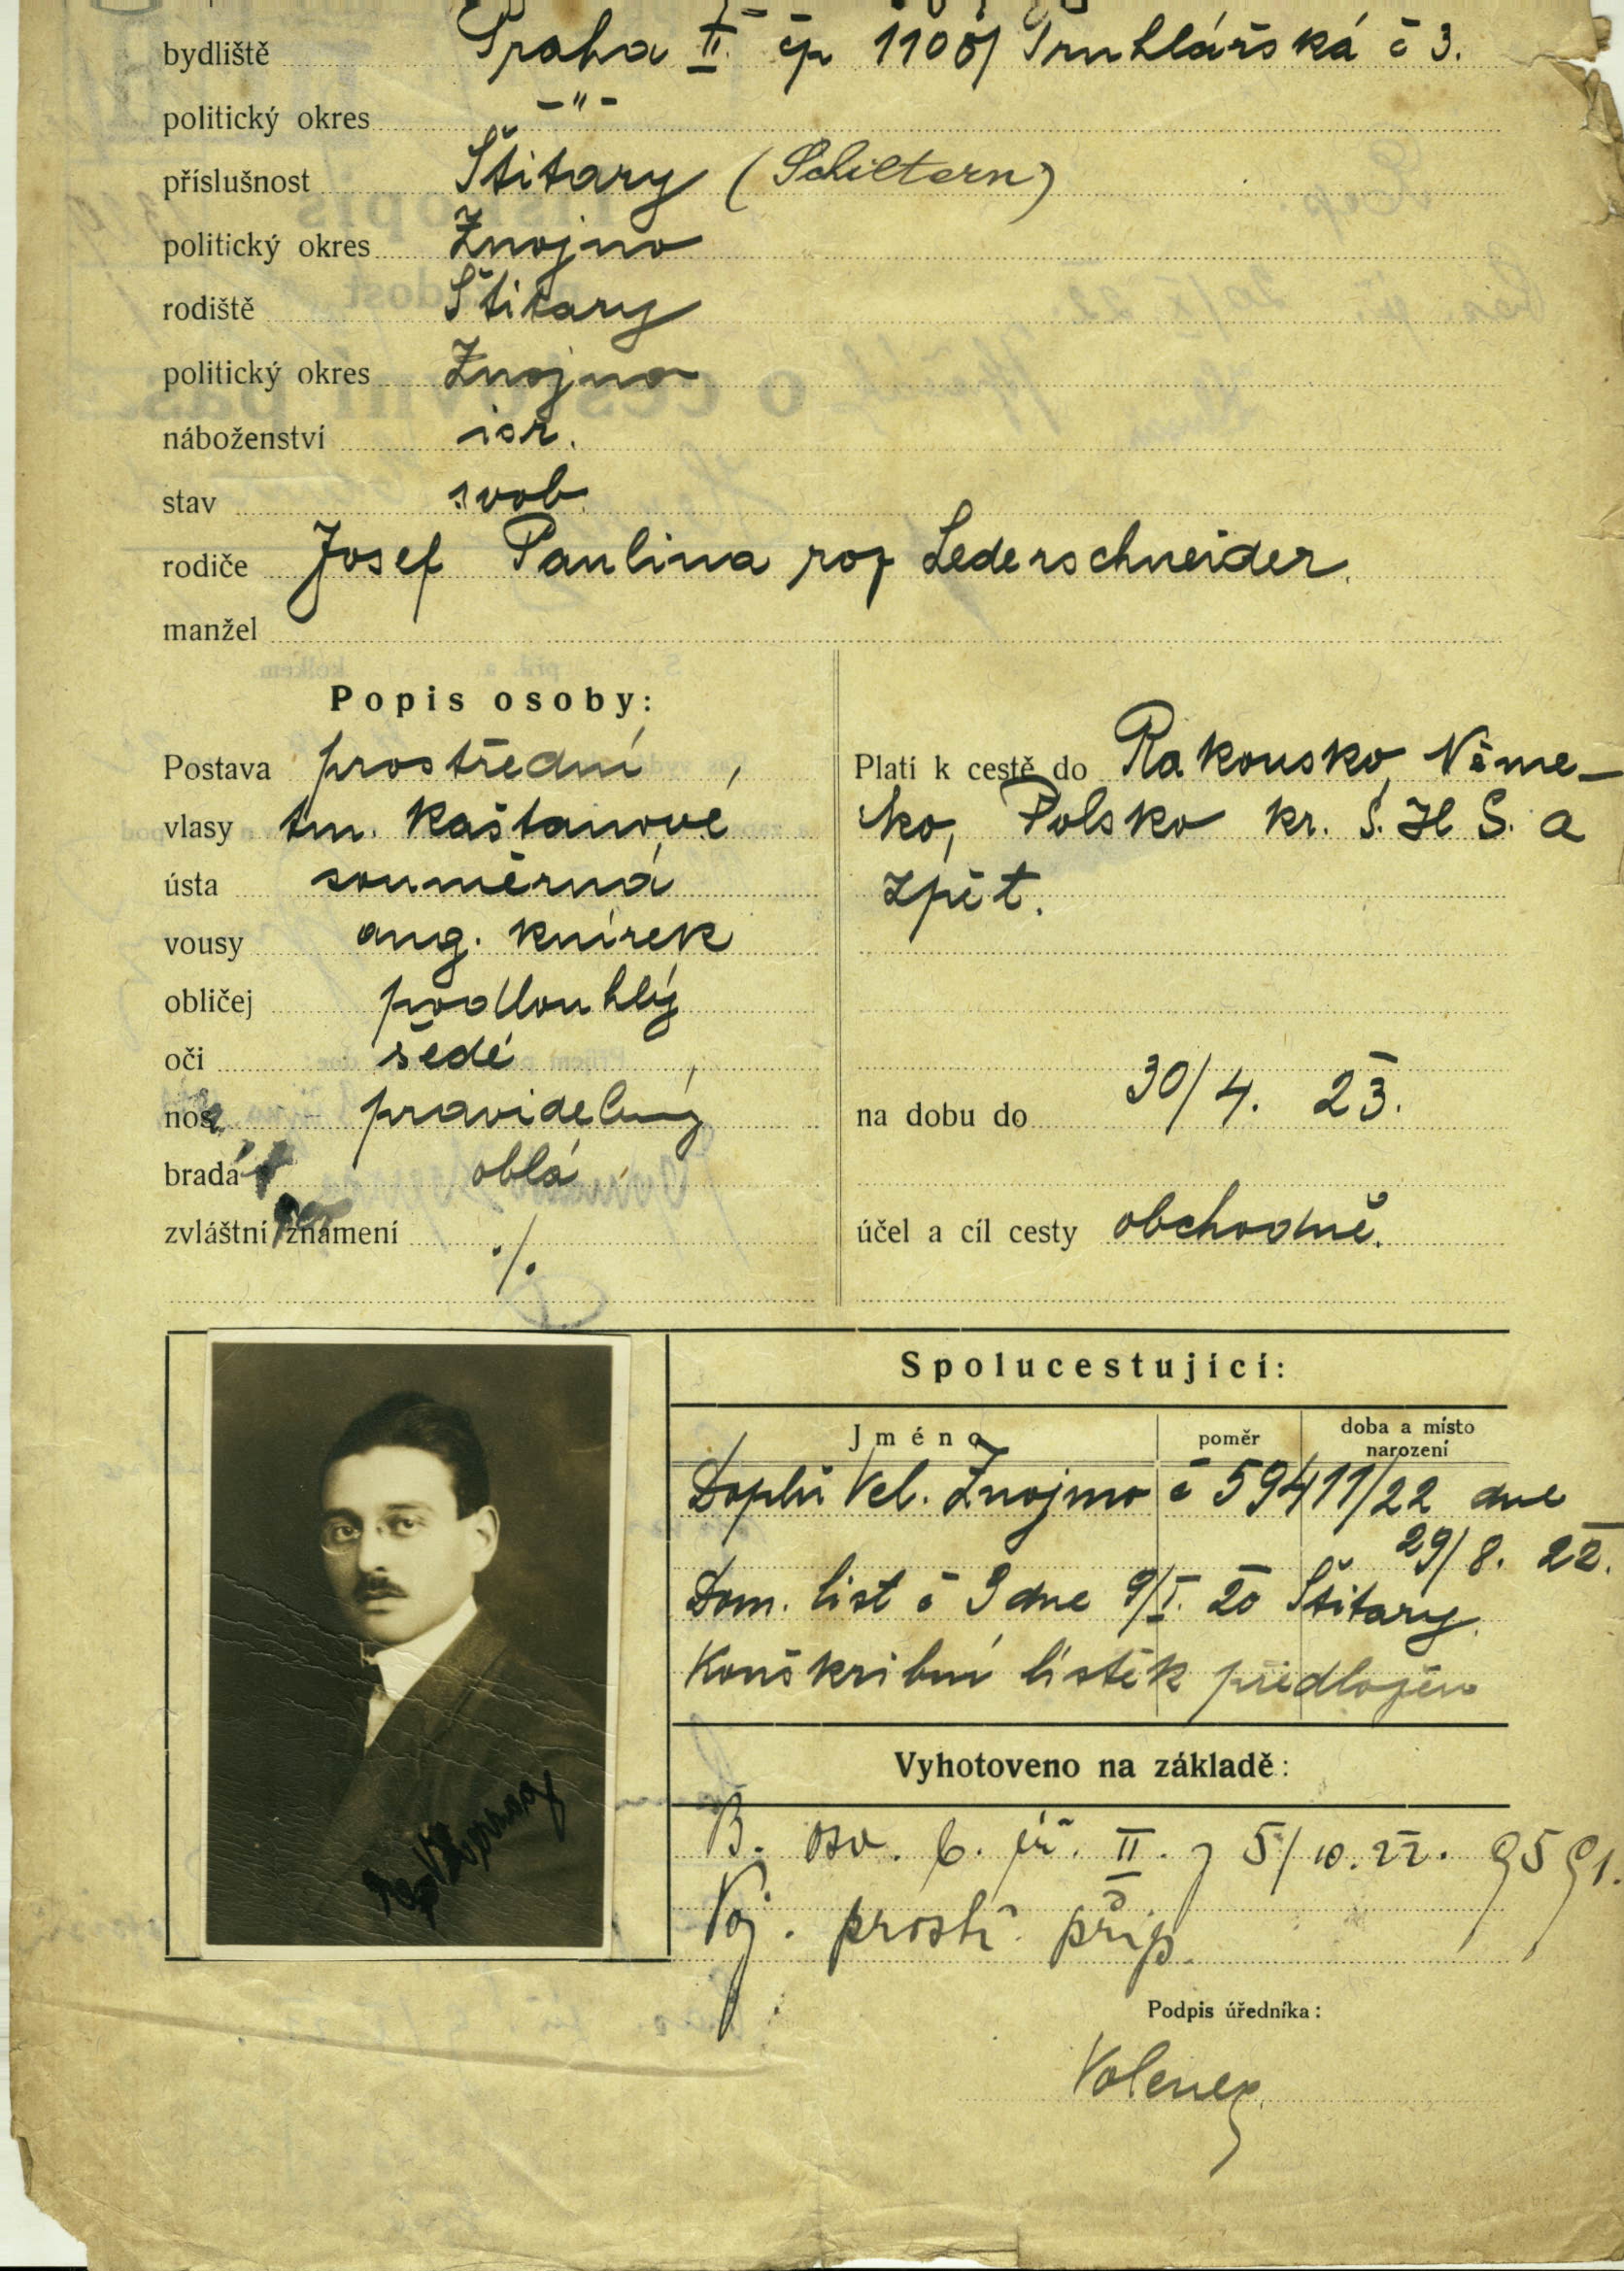 bydliště Praha II. čp 1108/ Truhlářská č 3.
politický okres -"-
příslušnost Štitary (Schiltern)
politický okres Znojmo
rodiště Štitary
politický okres Znojmo
náboženství isr.
stav svob.
rodiče Josef Paulina roz Lederschneider.
manžel
Popis osoby:
Postava prostřední
vlasy tm. kaštanové
ústa souměrná
vousy ang. knírek
obličej podlouhlý
oči šedé
nos pravidelný
brada oblá
zvláštní znamení ./.
Platí k cestě do Rakousko, Něme-
cko, Polsko kr. S. H S. a
zpět.
na dobu do 30/4. 23.
účel a cíl cesty obchodně.
Spolucestující:
Jméno poměr doba a místo
narození
Vel. Znojmo č 59411/22 dne
29/8. 22.
Dom. list č 9 dne 9/I. 20 Štitary.
Konskribní lístek předložen
Vyhotoveno na základě:
B. osv. b. II. z 5/10.22. 9591.
Voj. příp.
Podpis úředníka: